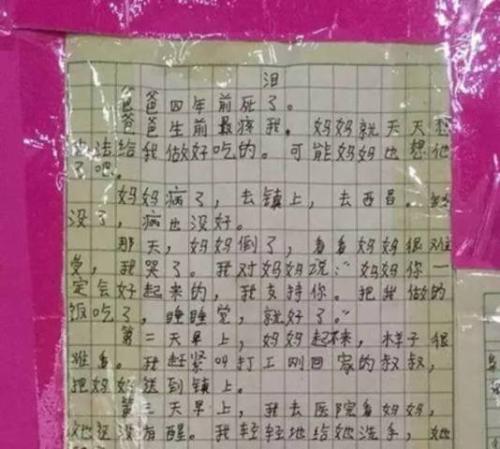 泪
爸爸四年前死了。
爸爸生前最疼我。妈妈就天天想
办法给我做好吃的。可能妈妈也想他
了吧。
妈妈病了，去镇上，去西昌。
没了，病也没好。
那天，妈妈倒了，看看妈妈很难
受，我哭了。我对妈妈说：“妈妈你一
定会好起来的，我支持你。把我做的
饭吃了，睡睡觉，就好了。”
第二天早上，妈妈起不来，样子很
难看。我赶紧叫打工刚回家的叔叔，
把妈妈送到镇上。
第三天早上，我去医院看妈妈，
她还没有醒。我轻轻地给她洗手，她